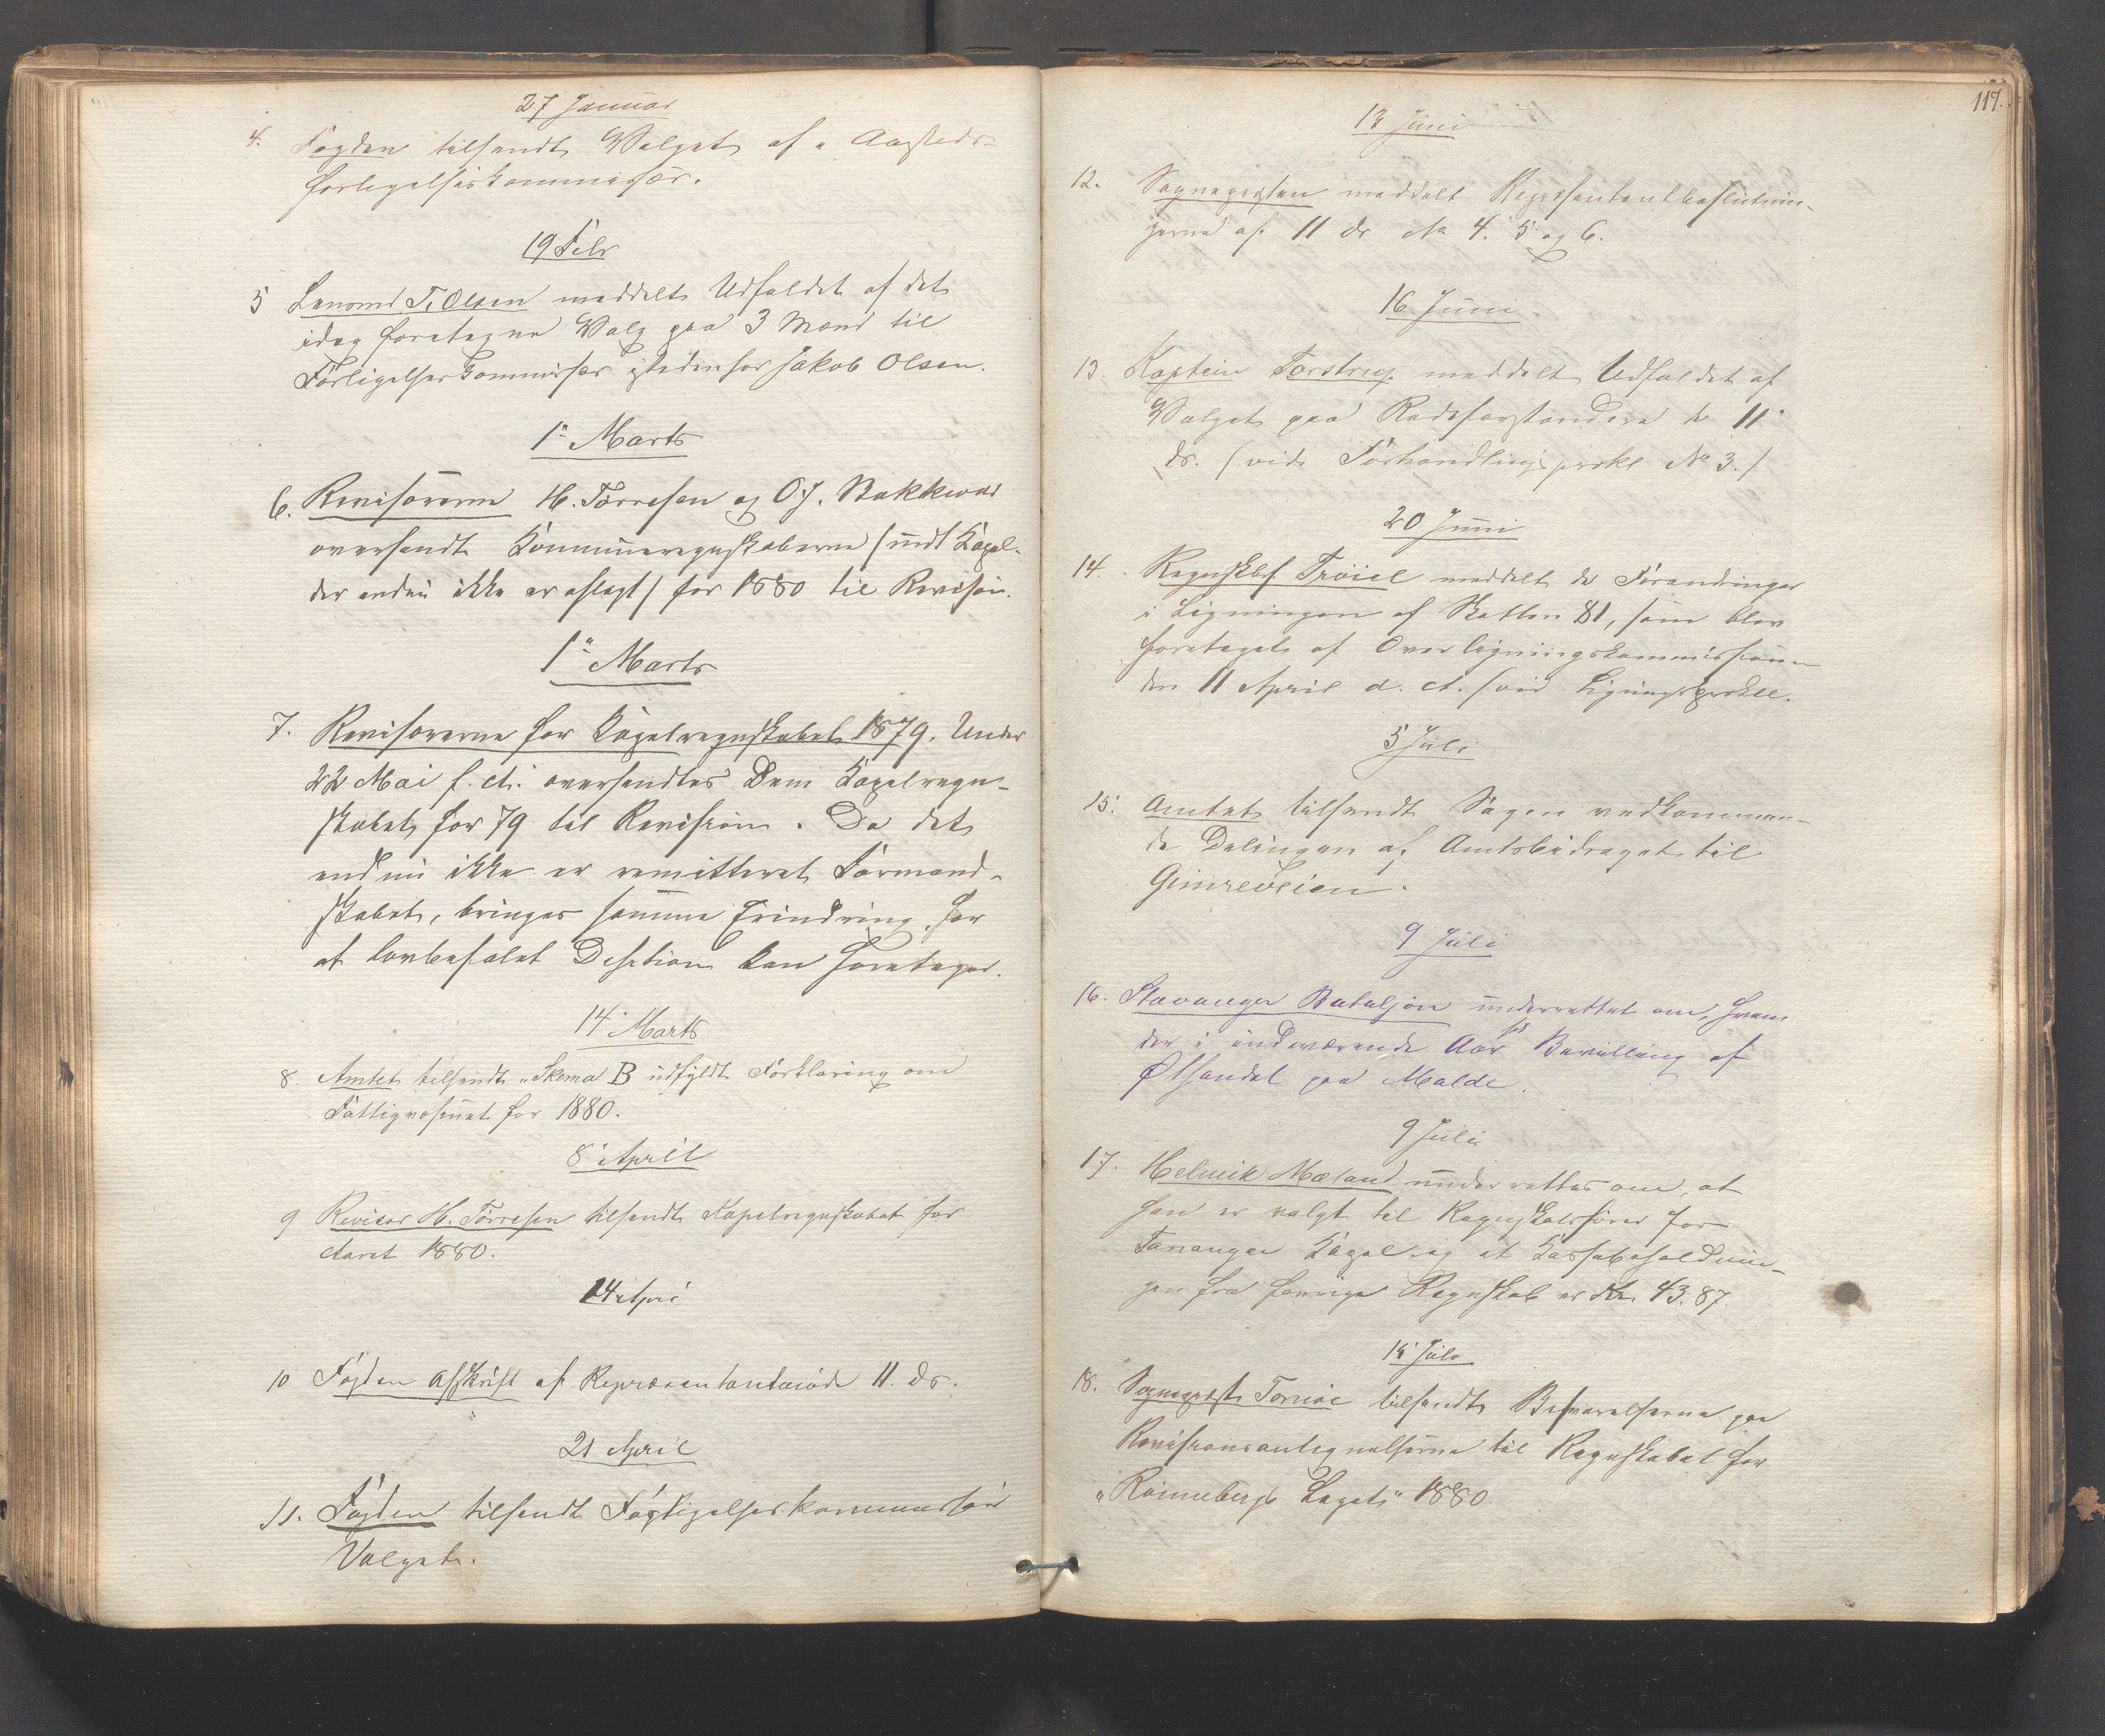 27 Januar
4. Fogden tilsendt Valget af a Aasteds-
forligelseskommissær.
19 Febr
5 Lensmd T. Olsen meddelt Udfaldet af det
idag foretagne Valg paa 3 Mænd til
Forligelseskommissær istedenfor Jakob Olsen.
1ste Marts
6. Revisorerne H. Tørresen og O. J. Bakkevad
oversendt Kommuneregnskaberne (undt Kapel-
der endnu ikke er aflagt) for 1880 til Revision.
1ste Marts
7. Revisorerne for Kapelregnskabet 1879. Under
22 Mai f. A. oversendtes Dem Kapelregn-
skabet for 79 til Revision. Da det
endnu ikke er remitteret Formand-
skabet, bringes samme Erindring, for
at lovbefalet Decision kan foretages.
14 Marts
8. Amtet tilsendt "Skema B udfyldt Forklaring om
Fattigvæsenet for 1880.
8 April
9 Revisor H. Tørresen tilsendt Kapelregnskabet for
Aaret 1880.
14 April
10 Fogden Afskrift af Repræsentantmøde 11. ds.
21 April
11. Fogden tilsendt Forligelseskommissær
Valget.
117.
13 Juni
12. Sognepresten meddelt Repræsentantbeslutnin-
gerne af 11 ds No 4. 5 og 6.
16 Juni
13. Kaptein Torstrup meddelt Udfaldet af
Valget paa Rodeforstandere d. 11te
ds. (vide Forhandlingsprotkl No 3.)
20 Juni
14. Regnskbf Trøiel meddelt de Forandringer
i Ligningen af Skatten 81, som blev
foretaget af Overligningskommissionen
den 11 April d. A. (vid Ligningsprotkll.
5 Juli
15. Amtet tilsendt Sagen vedkommen-
de Delingen af Amtsbidraget til
Gimreveien.
9 Juli
16. Stavanger Bataljon underrettet om, hvem
der i indeværende Aar har Bevilling af
Ølhandel paa Malde.
9 Juli
17. Helmik Mæland underrettes om, at
han er valgt til Regnskabsfører for
Tananger Kapel og at Kassabeholdnin-
gen fra forrige Regnskab er Kr. 43.87.
15 Juli
18. Sogneprest Tornøe tilsendt Besvarelserne paa
Revisionsantegnelserne til Regnskabet for
"Rønnebergs Legat" 1880.